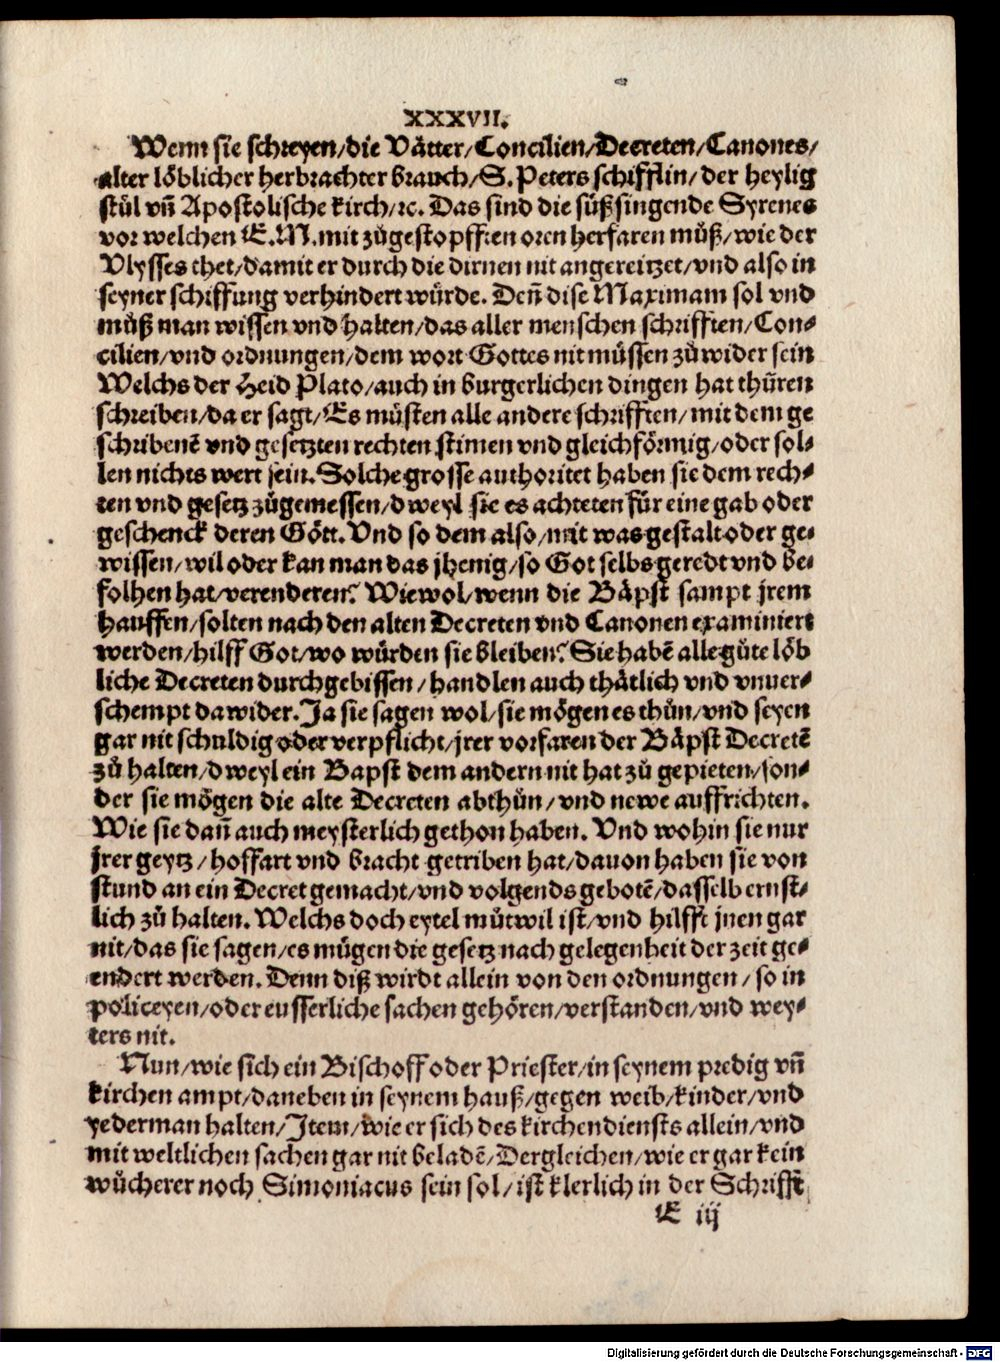 XXXVII.
Wenn sie schreyen/die Vätter/Concilien/Decreten/Canones/
alter löblicher herbrachter brauch/S. Peters schifflin/der heylig
stůl vñ Apostolische kirch/ꝛc. Das sind die süßsingende Syrenes
vor welchen E.M. mit zůgestopfften oren herfaren můß/wie der
Vlysses thet/damit er durch die dirnen nit angereitzet/vnd also in
seyner schiffung verhindert würde. Deñ dise Maximam sol vnd
můß man wissen vnd halten/das aller menschen schrifften/Con-
cilien/vnd ordnungen/dem wort Gottes nit müssen zů wider sein
Welchs der Heid Plato/auch in burgerlichen dingen hat thüren
schreiben/da er sagt/Es müsten alle andere schrifften/mit dem ge
schribenẽ vnd gesetzten rechten stimen vnd gleichförmig/oder sol-
len nichts wert sein. Solche grosse authoritet haben sie dem rech-
ten vnd gesetz zůgemessen/dweyl sie es achteten für eine gab oder
geschenck deren Gött. Vnd so dem also/mit was gestalt oder ge-
wissen/wil oder kan man das jhenig/so Got selbs geredt vnd be-
folhen hat/verenderen? Wiewol/wenn die Bäpst sampt jrem
hauffen/solten nach den alten Decreten vnd Canonen examiniert
werden/hilff Got/wo würden sie bleiben? Sie habẽ alle gůte löb
liche Decreten durchgebissen/handlen auch thätlich vnd vnuer-
schempt dawider. Ja sie sagen wol/sie mögen es thůn/vnd seyen
gar nit schuldig oder verpflicht/jrer vorfaren der Bäpst Decretẽ
zů halten/dweyl ein Bapst dem andern nit hat zů gepieten/son-
der sie mögen die alte Decreten abthůn/vnd newe auffrichten.
Wie sie dañ auch meysterlich gethon haben. Vnd wohin sie nur
jrer geytz/hoffart vnd bracht getriben hat/dauon haben sie von
stund an ein Decret gemacht/vnd volgends gebotẽ/dasselb ernst-
lich zů halten. Welchs doch eytel můtwil ist/vnd hilfft jnen gar
nit/das sie sagen/es mügen die gesetz nach gelegenheit der zeit ge-
endert werden. Denn diß wirdt allein von den ordnungen/so in
policeyen/oder eusserliche sachen gehören/verstanden/vnd wey-
ters nit.
Nun/wie sich ein Bischoff oder Priester/in seynem predig vñ
kirchen ampt/daneben in seynem hauß/gegen weib/kinder/vnd
yederman halten/Item/wie er sich des kirchendiensts allein/vnd
mit weltlichen sachen gar nit beladẽ/Dergleichen/wie er gar kein
wůcherer noch Simoniacus sein sol/ist klerlich in der Schrifft
E iij
Digitalisierung gefördert durch die Deutsche Forschungsgemeinschaft - DFG